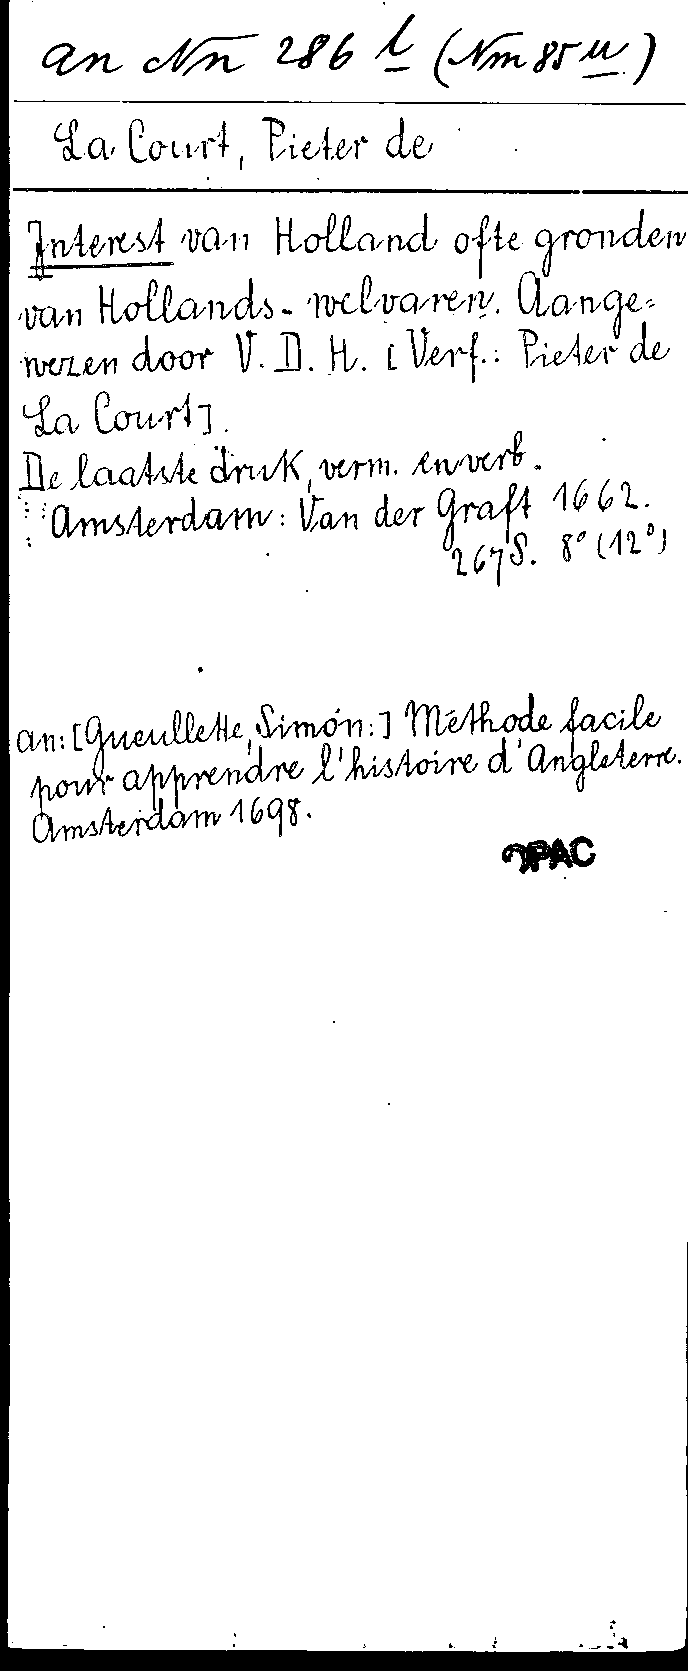 an Nn 286 l (Nm 85 u)
La Court, Pieter de
Interest van Holland ofte gronden
van Hollands-welvaren. Aange-
wezen door V. D. H. [Verf.: Pieter de
La Court].
De laatste druk, verm. en verb.
Amsterdam: Van der Graft 1662.
267 S. 8° (12°)
an: [Gueullette, Simon:] Méthode facile
pour apprendre l'histoire d'Angleterre.
Amsterdam 1698.
OPAC